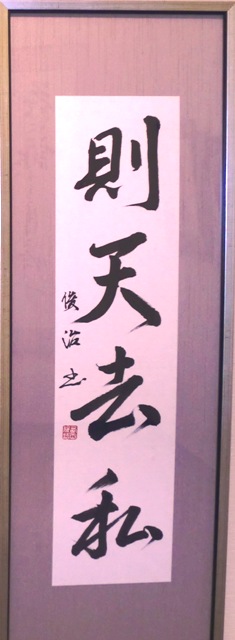 則天去私
俊治書